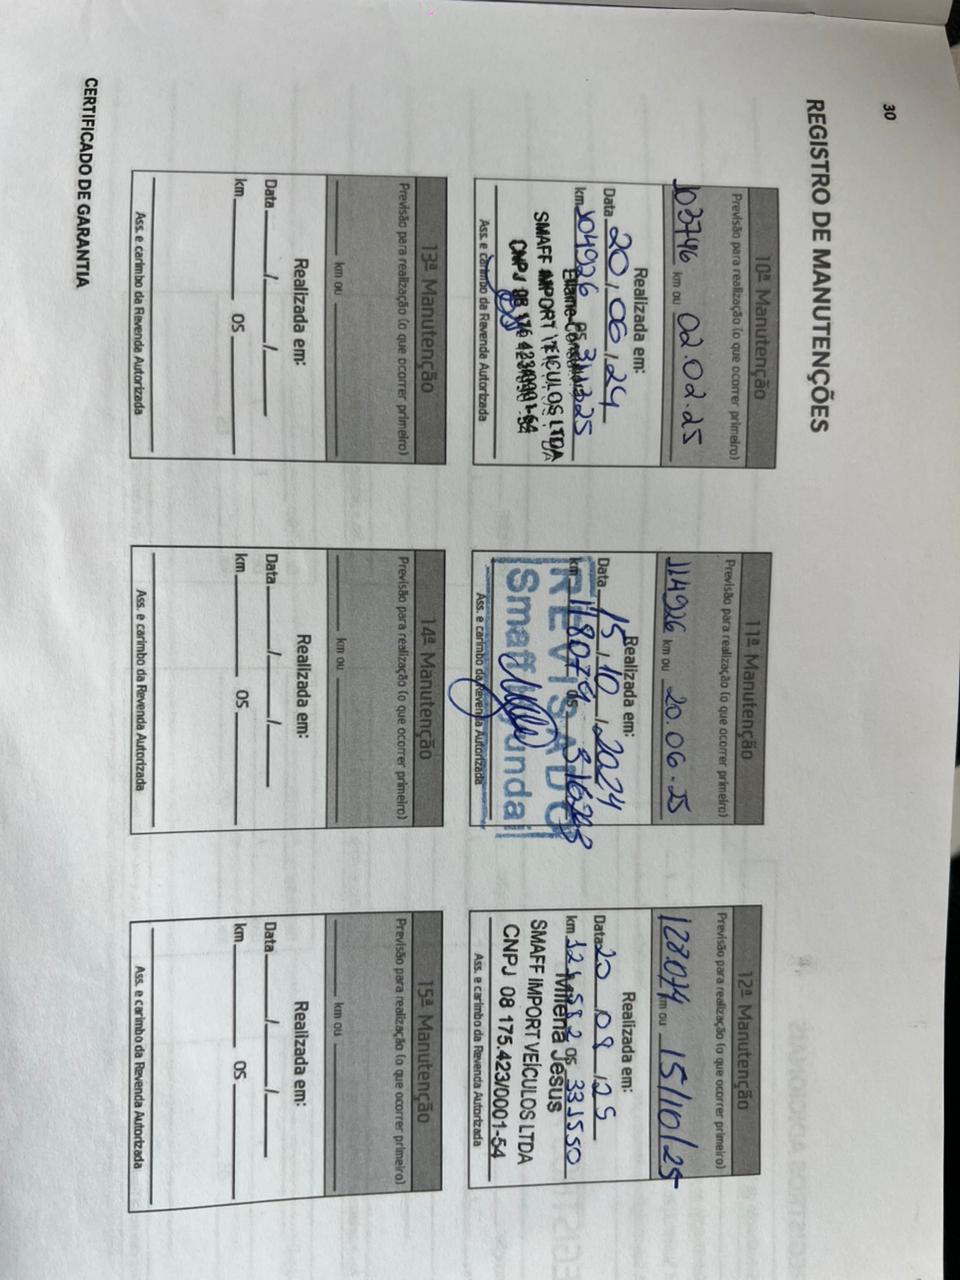 30
REGISTRO DE MANUTENÇÕES
10ª Manutenção
Previsão para realização (o que ocorrer primeiro)
103746 km ou 02.02.25
Realizada em:
Data 20/06/24
km 104926 OS 311325
SMAFF IMPORT VEICULOS LTDA
CNPJ 08 175 423/0001-54
Ass. e carimbo da Revenda Autorizada
11ª Manutenção
Previsão para realização (o que ocorrer primeiro)
114926 km ou 20.06.25
Realizada em:
Data 15/10/2024
km 118074 OS 316248
REVISADO
Smaff Hyundai
Ass. e carimbo da Revenda Autorizada
12ª Manutenção
Previsão para realização (o que ocorrer primeiro)
128074 km ou 15/10/25
Realizada em:
Data 20 09/25
km 124582 OS 331550
Milena Jesus
SMAFF IMPORT VEÍCULOS LTDA
CNPJ 08 175.423/0001-54
Ass. e carimbo da Revenda Autorizada
13ª Manutenção
Previsão para realização (o que ocorrer primeiro)
km ou
Realizada em:
Data / /
km OS
Ass. e carimbo da Revenda Autorizada
14ª Manutenção
Previsão para realização (o que ocorrer primeiro)
km ou
Realizada em:
Data / /
km OS
Ass. e carimbo da Revenda Autorizada
15ª Manutenção
Previsão para realização (o que ocorrer primeiro)
km ou
Realizada em:
Data / /
km OS
Ass. e carimbo da Revenda Autorizada
CERTIFICADO DE GARANTIA